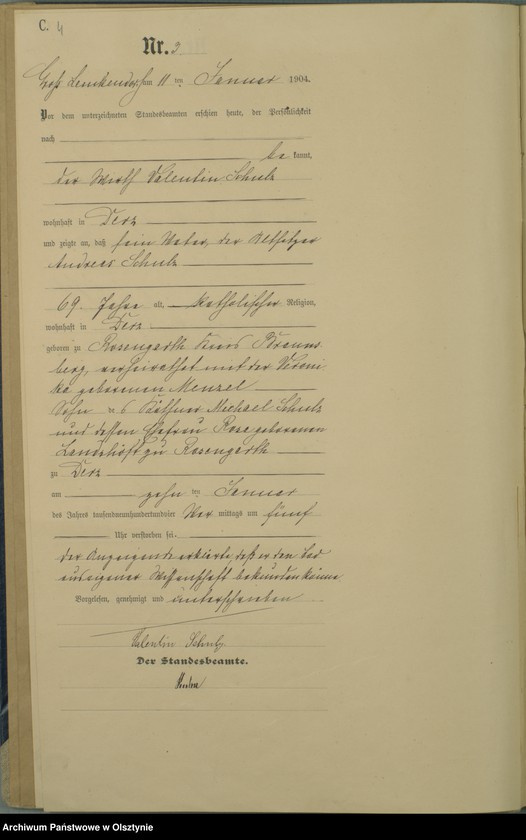 C. 4
Nr. 3
am 11 ten Januar 1904.
Vor dem unterzeichneten Standesbeamten erschien heute, der Persönlichkeit
nach
be kannt,
der Wirth Valentin Schulz
wohnhaft in Derz
und zeigte an, daß sein Vater, der Altsitzer
Andreas Schulz
69 Jahre alt, katholischer Religion,
wohnhaft in Derz
geboren zu Rosengarth Kreis Brauns
berg, verheirathet mit der Veroni
ka geborenen Menzel
Sohn des Käthner Michael Schulz
und dessen Ehefrau Rosa geborenen
zu Rosengarth
zu Derz
am zehn ten Januar
des Jahres tausendneunhundertundvier Vor mittags um fünf
Uhr verstorben sei.
Der Anzeigende erklärte, daß er den Tod
aus eigener Wissenschaft bekunden könne
Vorgelesen, genehmigt und unterschrieben
Valentin Schulz
Der Standesbeamte.
Archiwum Państwowe w Olsztynie